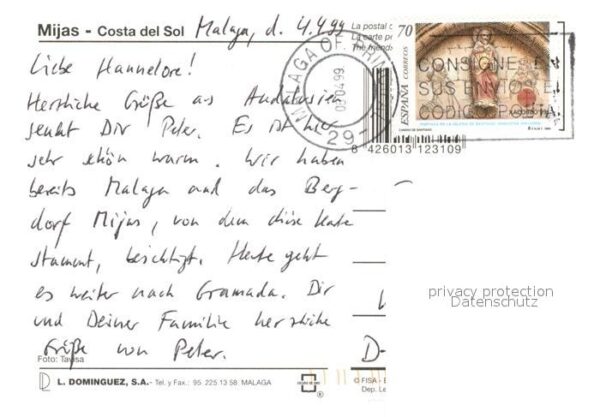 Mijas - Costa del Sol Malaga, d. 4.4.99
La postal
La carte po
The friend
Liebe Hannelore!
Herzliche Grüße aus Andalusien
sendet Dir Peter. Es ist hier
sehr schön warm. Wir haben
bereits Malaga und das Berg-
dorf Mijas, von dem diese Karte
stammt, besichtigt. Heute geht
es weiter nach Granada. Dir
und Deiner Familie herzliche
Grüße von Peter.
Foto: Tavisa
L. DOMINGUEZ, S.A. - Tel. y Fax.: 95 225 13 58 MALAGA
© FISA - E
Dep. Le
D-
70
ESPAÑA CORREOS
CAMINO DE SANTIAGO
MALAGA
03.04.99
29
CONSIGNE E
SUS ENVIOS E
CODIGO POSTA
8 426013 123109
privacy protection
Datenschutz